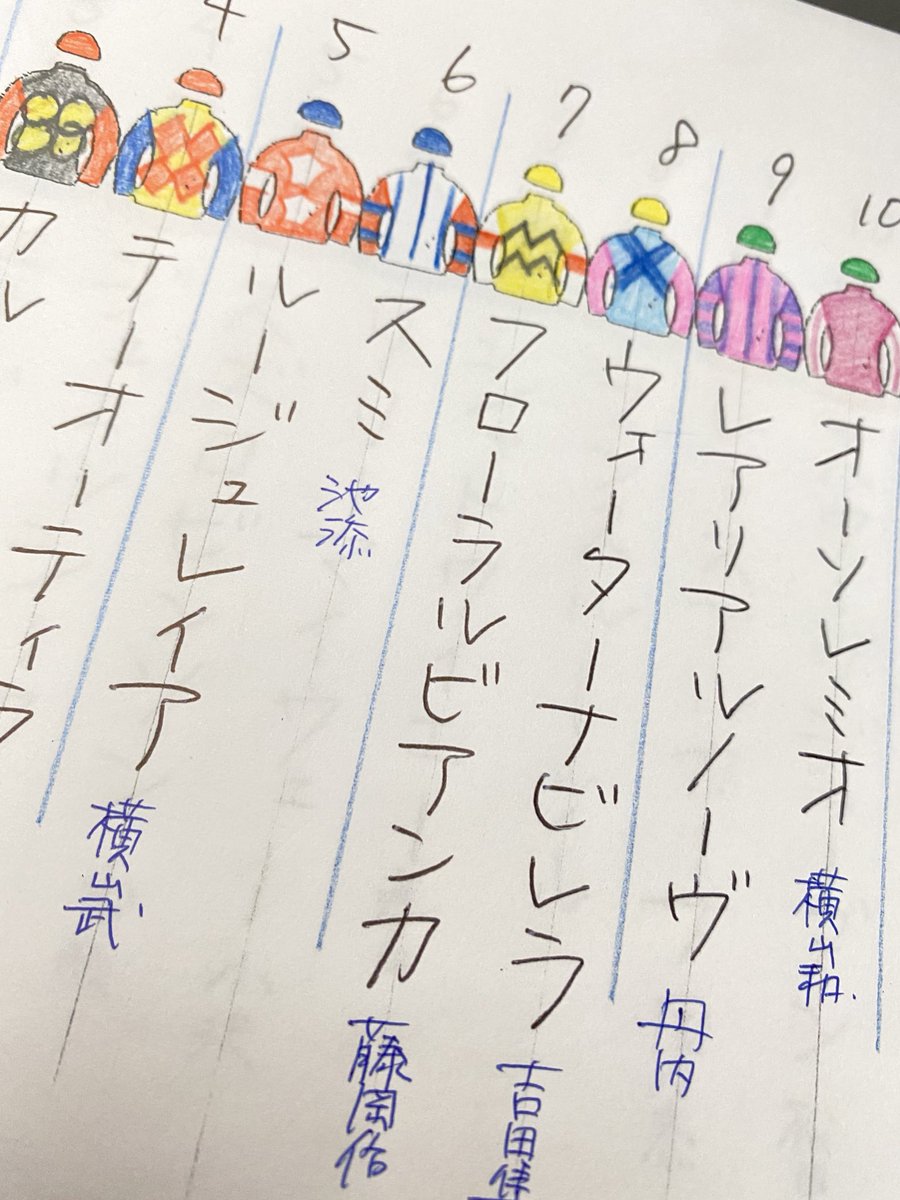 4 5 6 7 8 9 10
テーオーティ
ルージュレイア 横山武.
スミ 池添
フローラルビアンカ 藤岡佑
ウォーターナビレラ 吉田隼
レアリアルノーヴ 丹内
オーソレミオ 横山和.